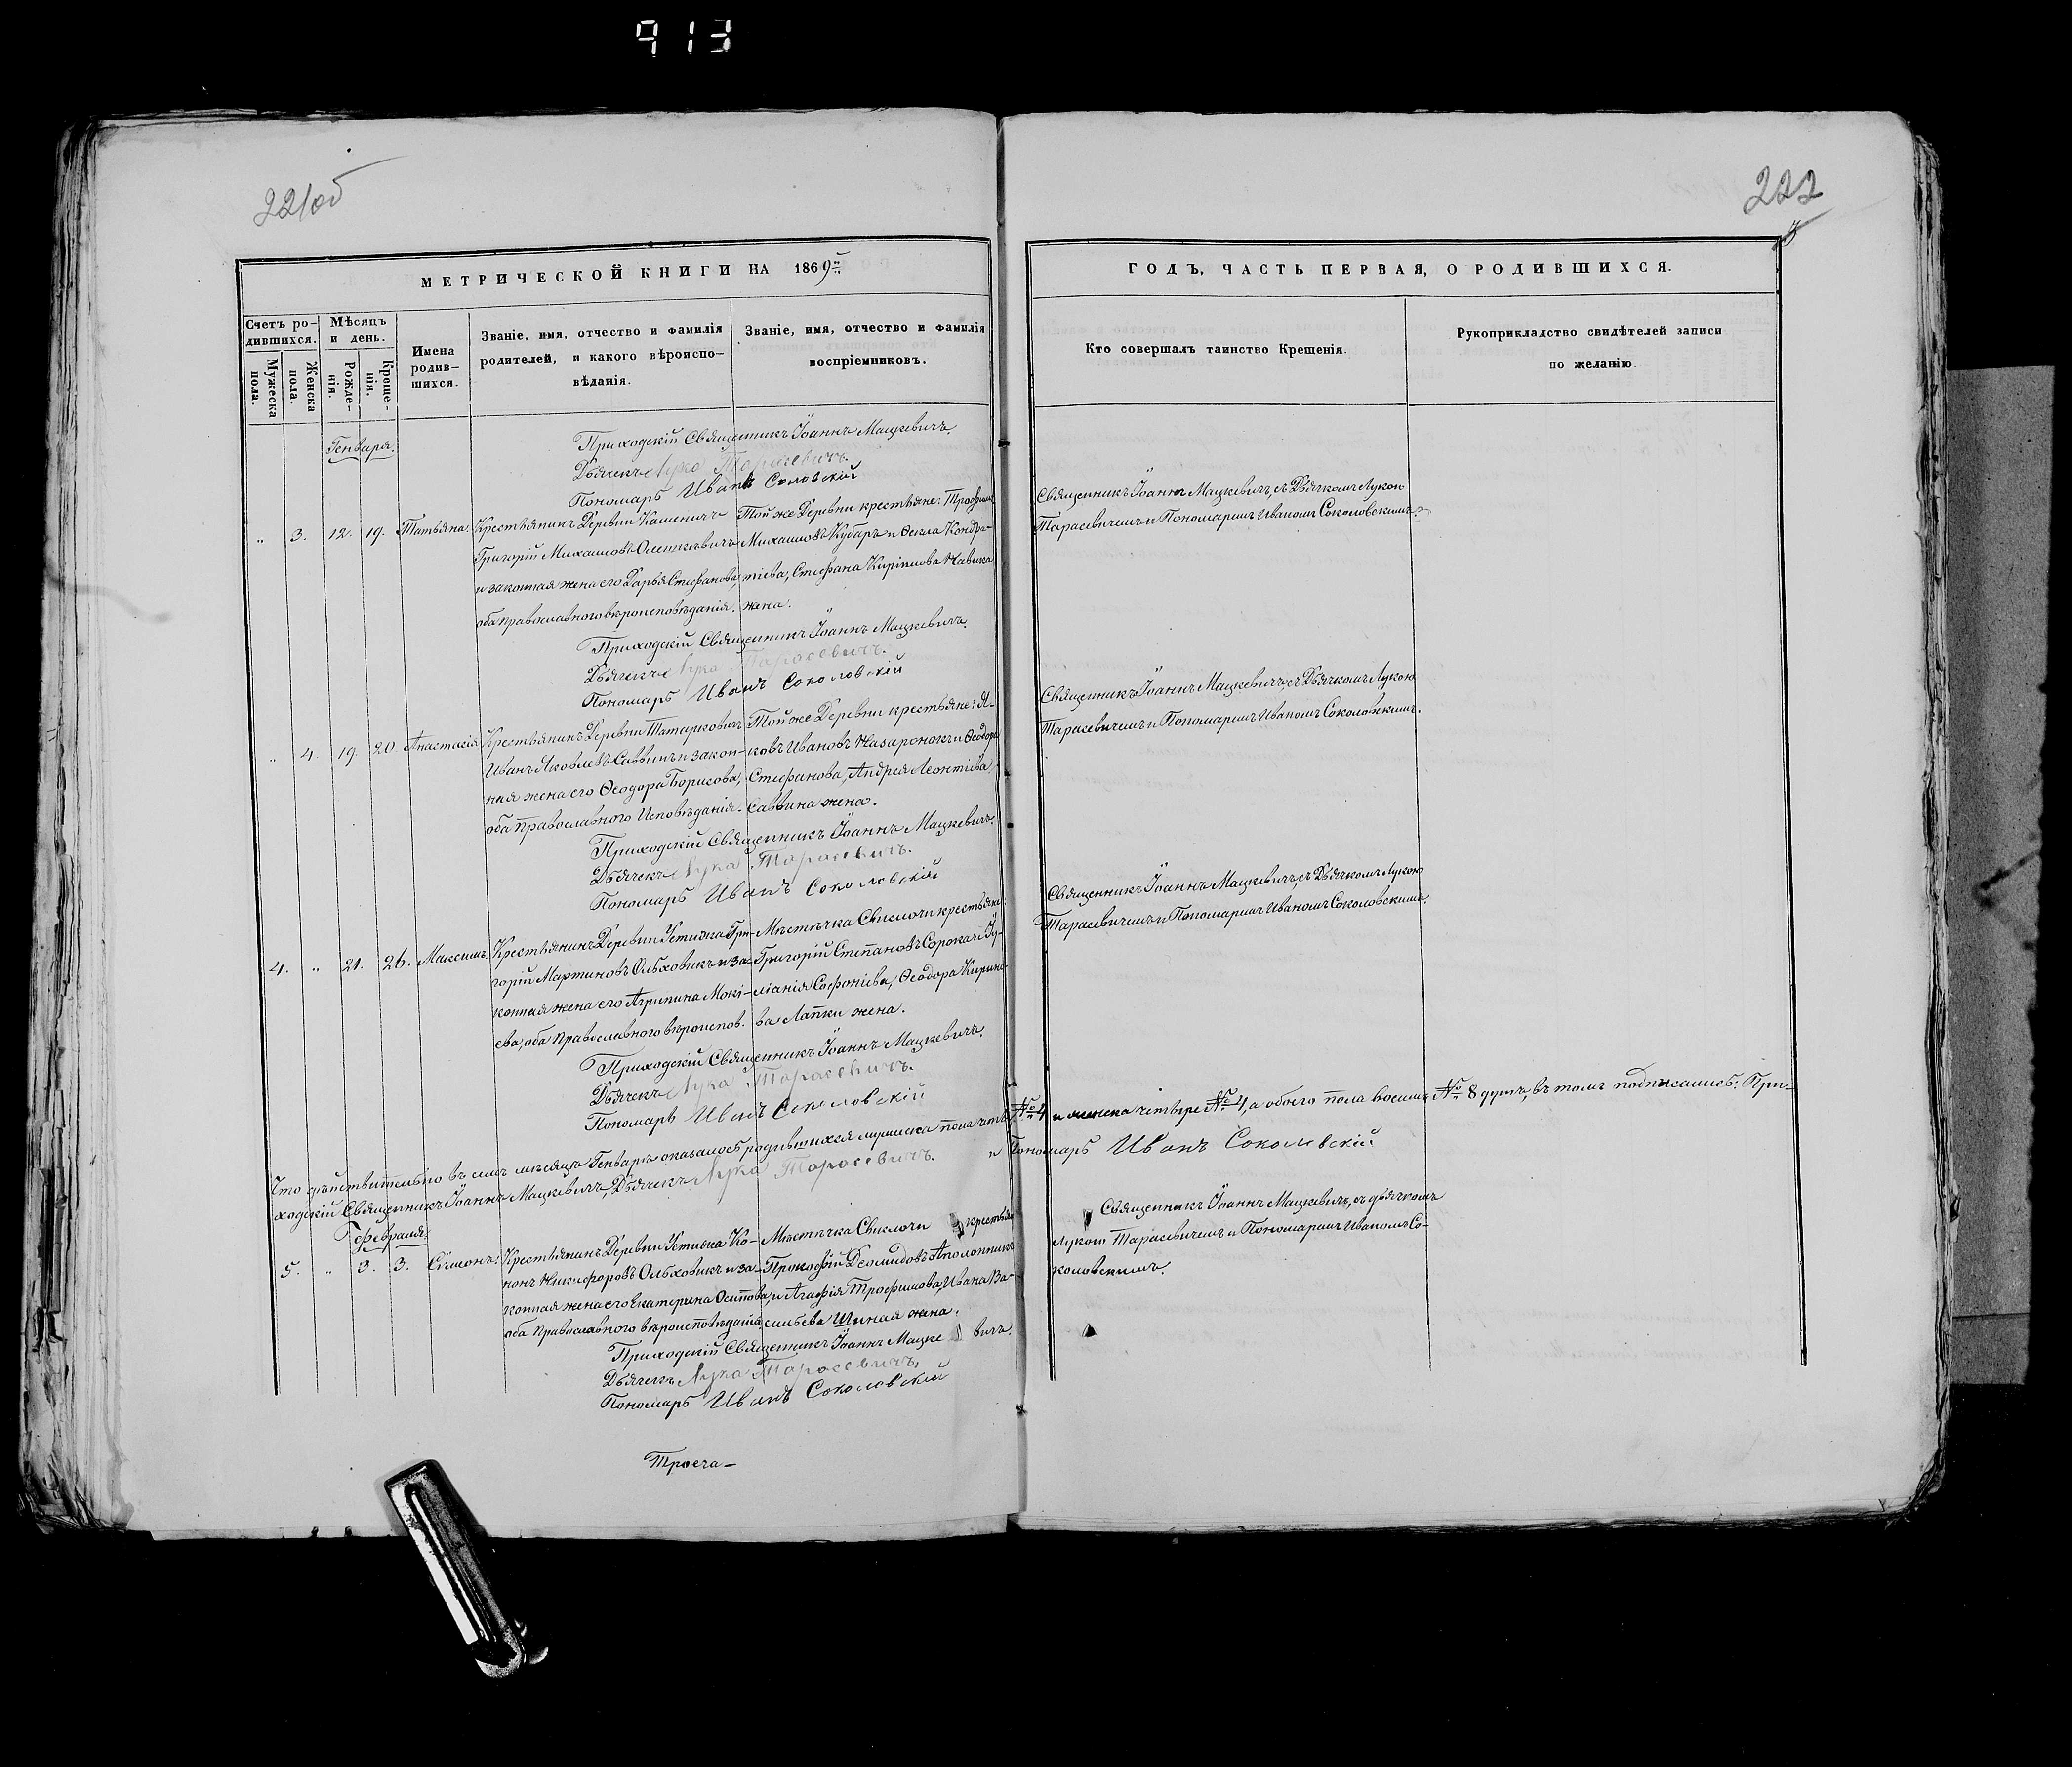 913
221об
222
3
МЕТРИЧЕСКОЙ КНИГИ НА 1869й
ГОДЪ, ЧАСТЬ ПЕРВАЯ, О РОДИВШИХСЯ.
Счетъ ро-
дившихся.
Мужеска
пола.
Женска
пола.
Мѣсяцъ
и день.
Рожде-
нія.
Креще-
нія.
Имена
родив-
шихся.
Званіе, имя, отчество и фамилія
родителей, и какого вѣроиспо-
вѣданія.
Званіе, имя, отчество и фамилія
воспріемниковъ.
Кто совершалъ таинство Крещенія.
Рукоприкладство свидѣтелей записи
по желанію.
Генваря.
Приходскій Священникъ Іоаннъ Мацкевичъ.
Дьячекъ Лука Тарасевичъ.
Пономарь Иванъ Соловскій
„ 3. 12. 19. Татьяна.
Крестьянинъ Деревни Каменичъ
Григорій Михаиловъ Олешкевичъ
и законная жена его Дарья Стефанова
оба православнаго вѣроисповѣданія.
Той же Деревни крестьяне: Трофимъ
Михаиловъ Кубаръ и Фекла Кондра-
тіева, Стефана Кирилова Навика
жена.
Священникъ Іоаннъ Мацкевичъ, съ Дьячкомъ Лукою
Тарасевичемъ и Пономаремъ Иваномъ Соколовскимъ.
Приходскій Священникъ Іоаннъ Мацкевичъ.
Дьячекъ Лука Тарасевичъ.
Пономарь Иванъ Соколовскій
„ 4. 19. 20. Анастасія
Крестьянинъ Деревни Татарковичъ
Иванъ Яковлевъ Саввинъ и закон-
ная жена его Ѳеодора Борисова,
оба православнаго Исповѣданія.
Той же Деревни крестьяне: Я-
ковъ Ивановъ Назаронокъ и Ѳеодора
Стефанова, Андрея Леонтіева
Саввина жена.
Священникъ Іоаннъ Мацкевичъ, съ Дьячкомъ Лукою
Тарасевичемъ и Пономаремъ Иваномъ Соколовскимъ.
Приходскій Священникъ Іоаннъ Мацкевичъ.
Дьячекъ Лука Тарасевичъ.
Пономарь Иванъ Соколовскій
4. „ 21. 26. Максимъ.
Крестьянинъ Деревни Устижа Гри-
горій Мартиновъ Ольховикъ и за-
конная жена его Агрипина Мокі-
ева, оба Православнаго вѣроиспов.
Мѣстечка Свислочи крестьяне
Григорій Степановъ Сорока и Іу-
ліанія Софоніева, Ѳеодора Кирило-
ва Лапки жена.
Священникъ Іоаннъ Мацкевичъ, съ Дьячкомъ Лукою
Тарасевичемъ и Пономаремъ Иваномъ Соколовскимъ.
Приходскій Священникъ Іоаннъ Мацкевичъ.
Дьячекъ Лука Тарасевичъ.
Пономарь Иванъ Соколовскій
Что дѣйствительно въ семъ мѣсяцѣ Генварѣ оказалось родившихся мужеска пола четыре № 4 и женска четыре № 4, а обоего пола восемь № 8 душъ, въ томъ подписались: При-
ходскій Священникъ Іоаннъ Мацкевичъ, Дьячекъ Лука Тарасевичъ. и Пономарь Иванъ Соколовскій
Февраля
5. „ 3. 3. Сѵмеонъ.
Крестьянинъ Деревни Устижа Ко-
нонъ Никифоровъ Ольховикъ и за-
конная жена его Екатерина Осипова,
оба православнаго вѣроисповѣданія
Мѣстечка Свислочи крестьяне
Прокофій Деомидовъ Аполоникъ
и Агафія Трофимова, Ивана Ва-
сильева Шиная жена.
Священникъ Іоаннъ Мацкевичъ, съ дьячкомъ
Лукою Тарасевичемъ и Пономаремъ Иваномъ Со-
коловскимъ.
Приходскій Священникъ Іоаннъ Мацкевичъ.
Дьячекъ Лука Тарасевичъ.
Пономарь Иванъ Соколовскій